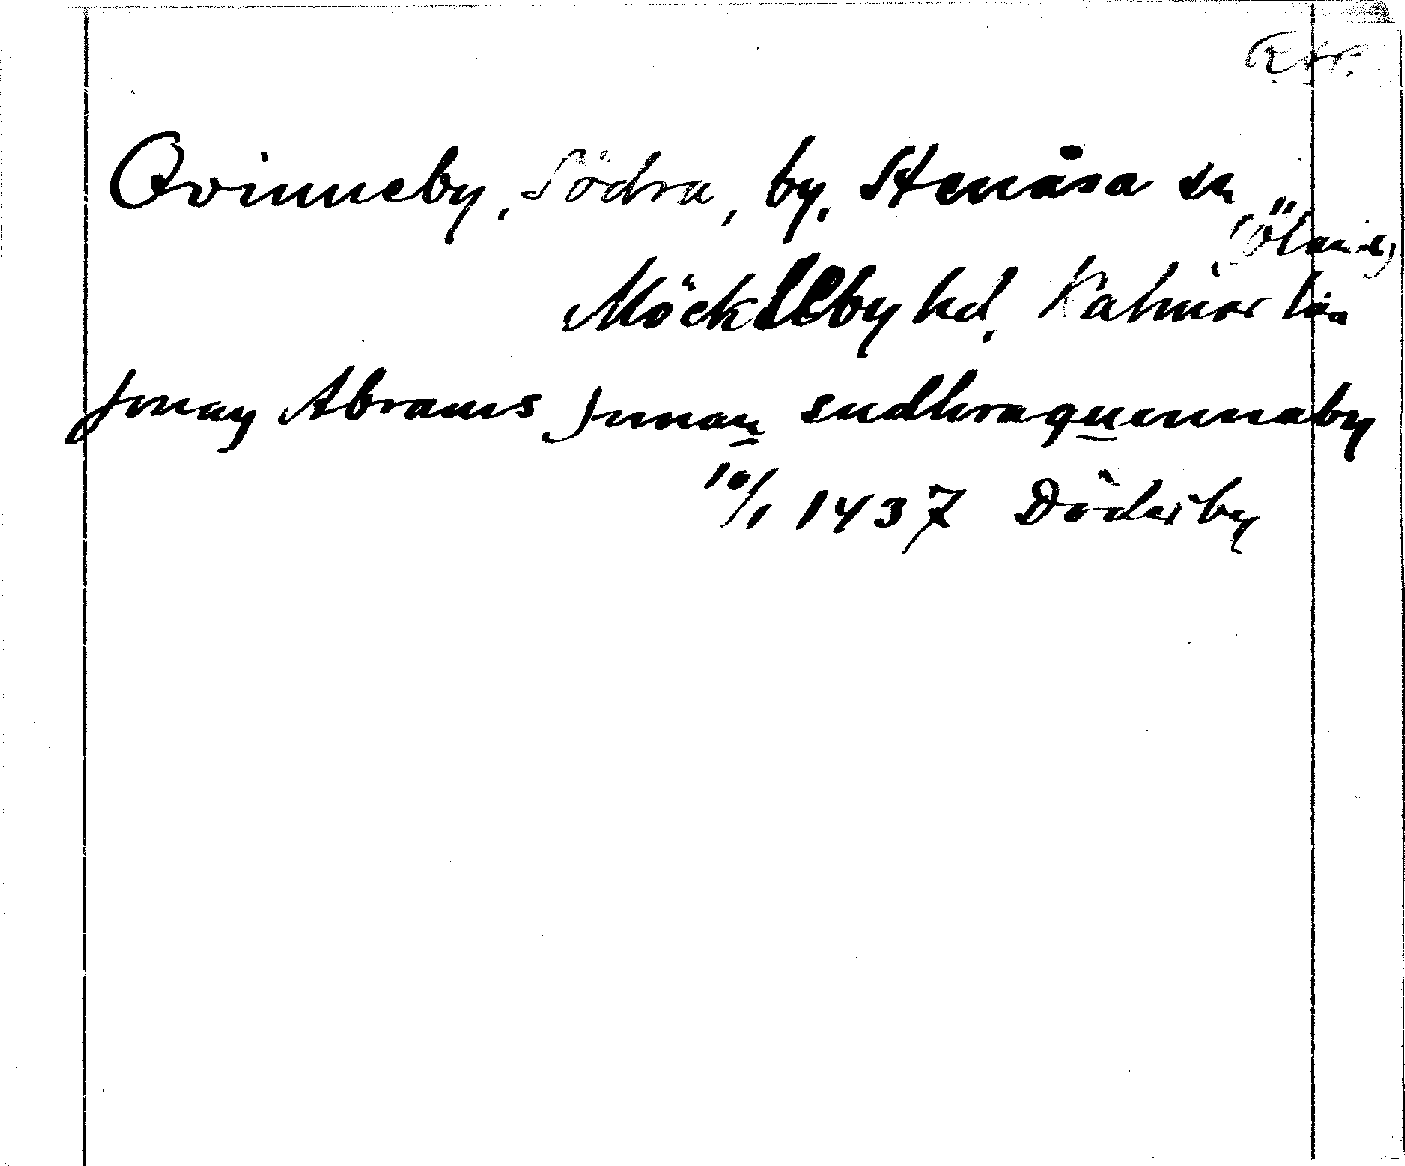 Qvinneby, Södra, by, Stenåsa sn
(Öland)
Möckleby hd, Kalmar län
Abrams sudhraquennaby
10/1 1437 Döderby